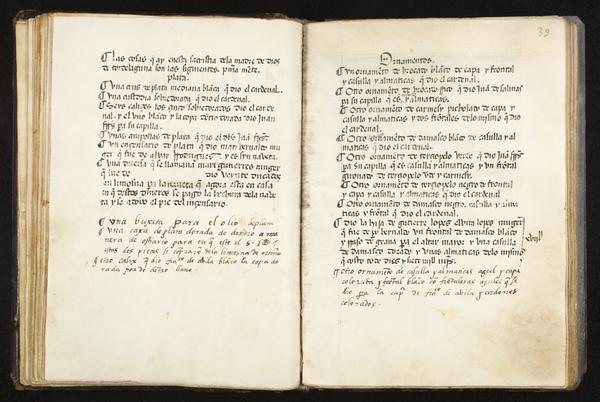 ¶ las cosas q ay en esta sacristia dela madre de dios
de tordelaguna son las siguientes. prima mente.
plata.
¶ Una cruz de plata mediana blāca q̄ dio el cardenal.
¶ Una custodia sobredorada q̄ dio el cardenal.
¶ Seys calizes los cinco sobredorados dio el carde
nal. y el uno blāco y la copa dorada dio Juan
para su capilla.
¶ Unas ampollas de plata q̄ dio el
¶ Un encensario de plata q̄ dio mari bernalte mu
ger q̄ fue de alvar rrodrigues. y es sin naveta.
¶ Una dueña q̄ se llamava mari gutierres muger
q̄ fue de dio veynte ducados
en limosna pa la naveta q̄ agora esta en casa
en q̄ destos dineros se pago la hechura dela nave
ta y se adobo el pie del incensario.
¶ Una buxeta para el olio de plata
¶ una caxa de plata dorada de dentro a ma
nera de ostiario para en q̄ este el S.
estas dos pieças se conpraron dela limosna de
¶ otro calix q̄ dio de avila blāco la copa do
rada por de dētro llano.
39
Ornamentos.
¶ Un ornamēto de brocato blāco de capa y frontal
y casulla y almaticas q̄ dio el cardenal.
¶ Otro ornamēto de brocato q̄ dio Juā de salinas
pa su capilla q̄ es y almaticas.
¶ Otro ornamēto de carmesy de capa y
casulla y almaticas y dos frōtales delo mismo q̄ dio
el cardenal.
¶ Otro ornamēto de damasco blāco de casulla y al
maticas q̄ dio el cardenal.
¶ Otro ornamēto de terciopelo verde q̄ dio Juā
pa su capilla q̄ es casulla y almaticas y un frōtal
de terciopelo verde y carmesy.
¶ Otro ornamēto de terciopelo negro de frontal
y capa y casulla y almaticas q̄ dio el cardenal
¶ Otro ornamēto de damasco negro. casulla y alma
ticas y frōtal q̄ dio el cardenal.
¶ Dio la hija de gutierre lopez elvira lopez muger
q̄ fue de po bernalte un frontal de damasco blāco
y raso de grana pa el altar mayor y una casulla
de damasco dorado y unas almaticas delo mismo
q̄ costo todo diez y siete mill
¶ Otro ornamēto de casulla y almaticas azul y capa
colorada y frōtal blāco cō frontaleras azules q̄ se
hizo pa la cap de de avila y cordones
colorados.